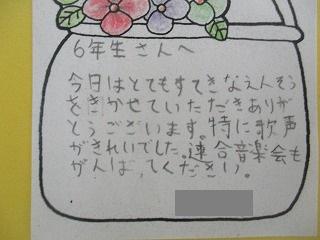 6年生さんへ
今日はとてもすてきなえんそう
をきかせていただきありが
とうございます。特に歌声
がきれいでした。連合音楽会も
がんばってください。